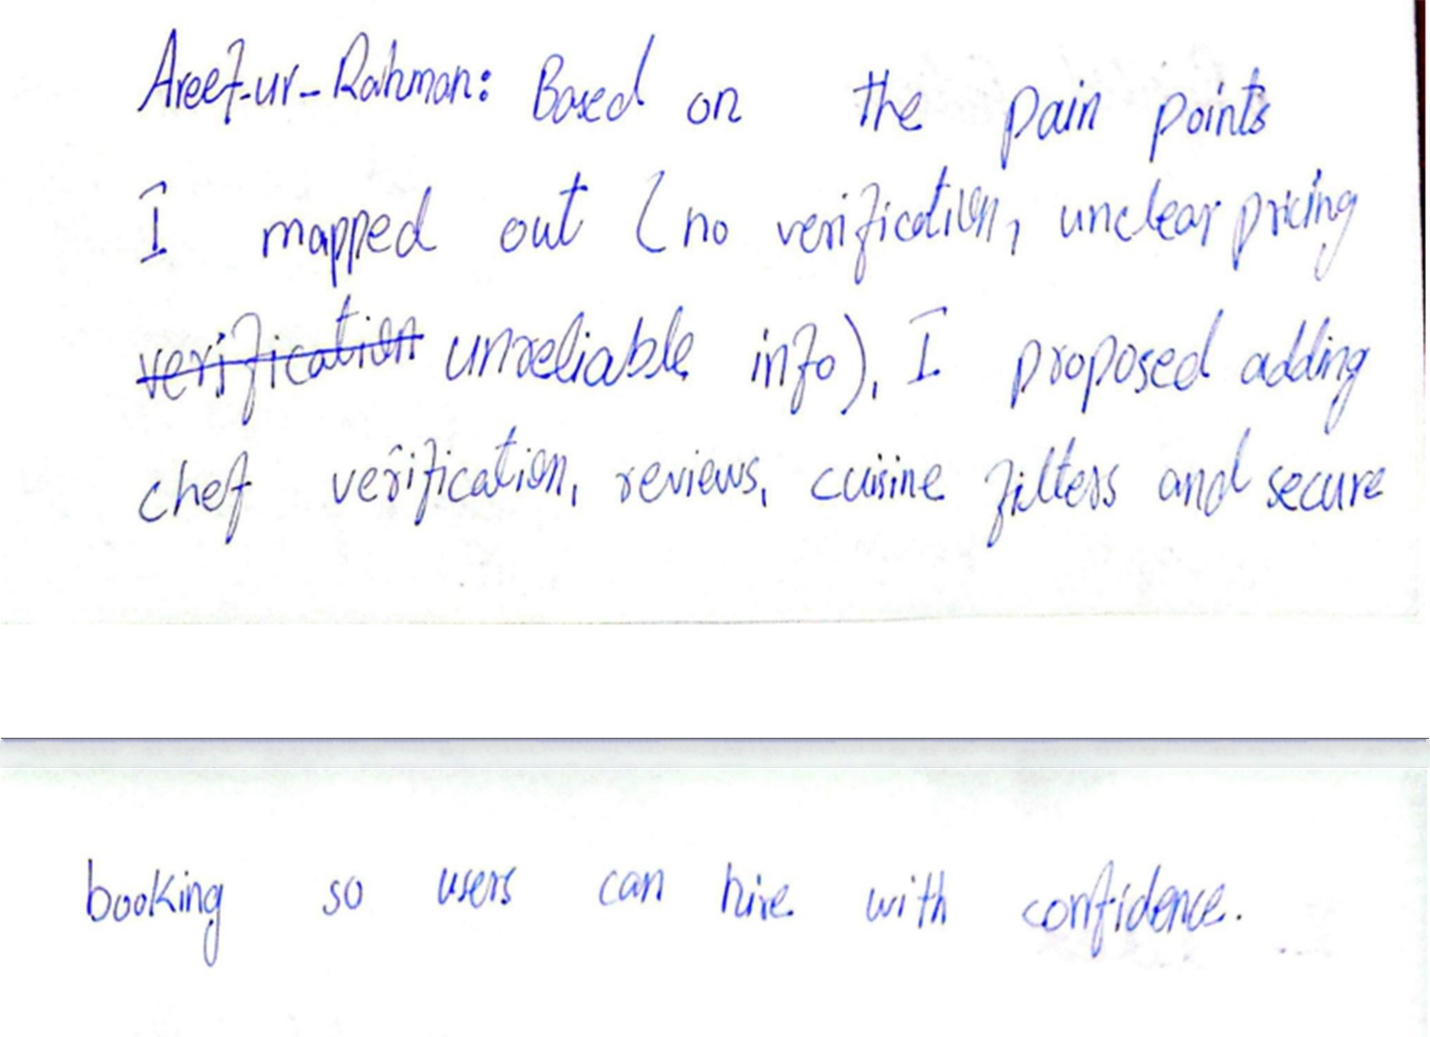 Areef-ur-Rahman: Based on the pain points
I mapped out (no verification, unclear pricing
~~verification~~ unreliable info), I proposed adding
chef verification, reviews, cuisine filters and secure
booking so users can hire with confidence.